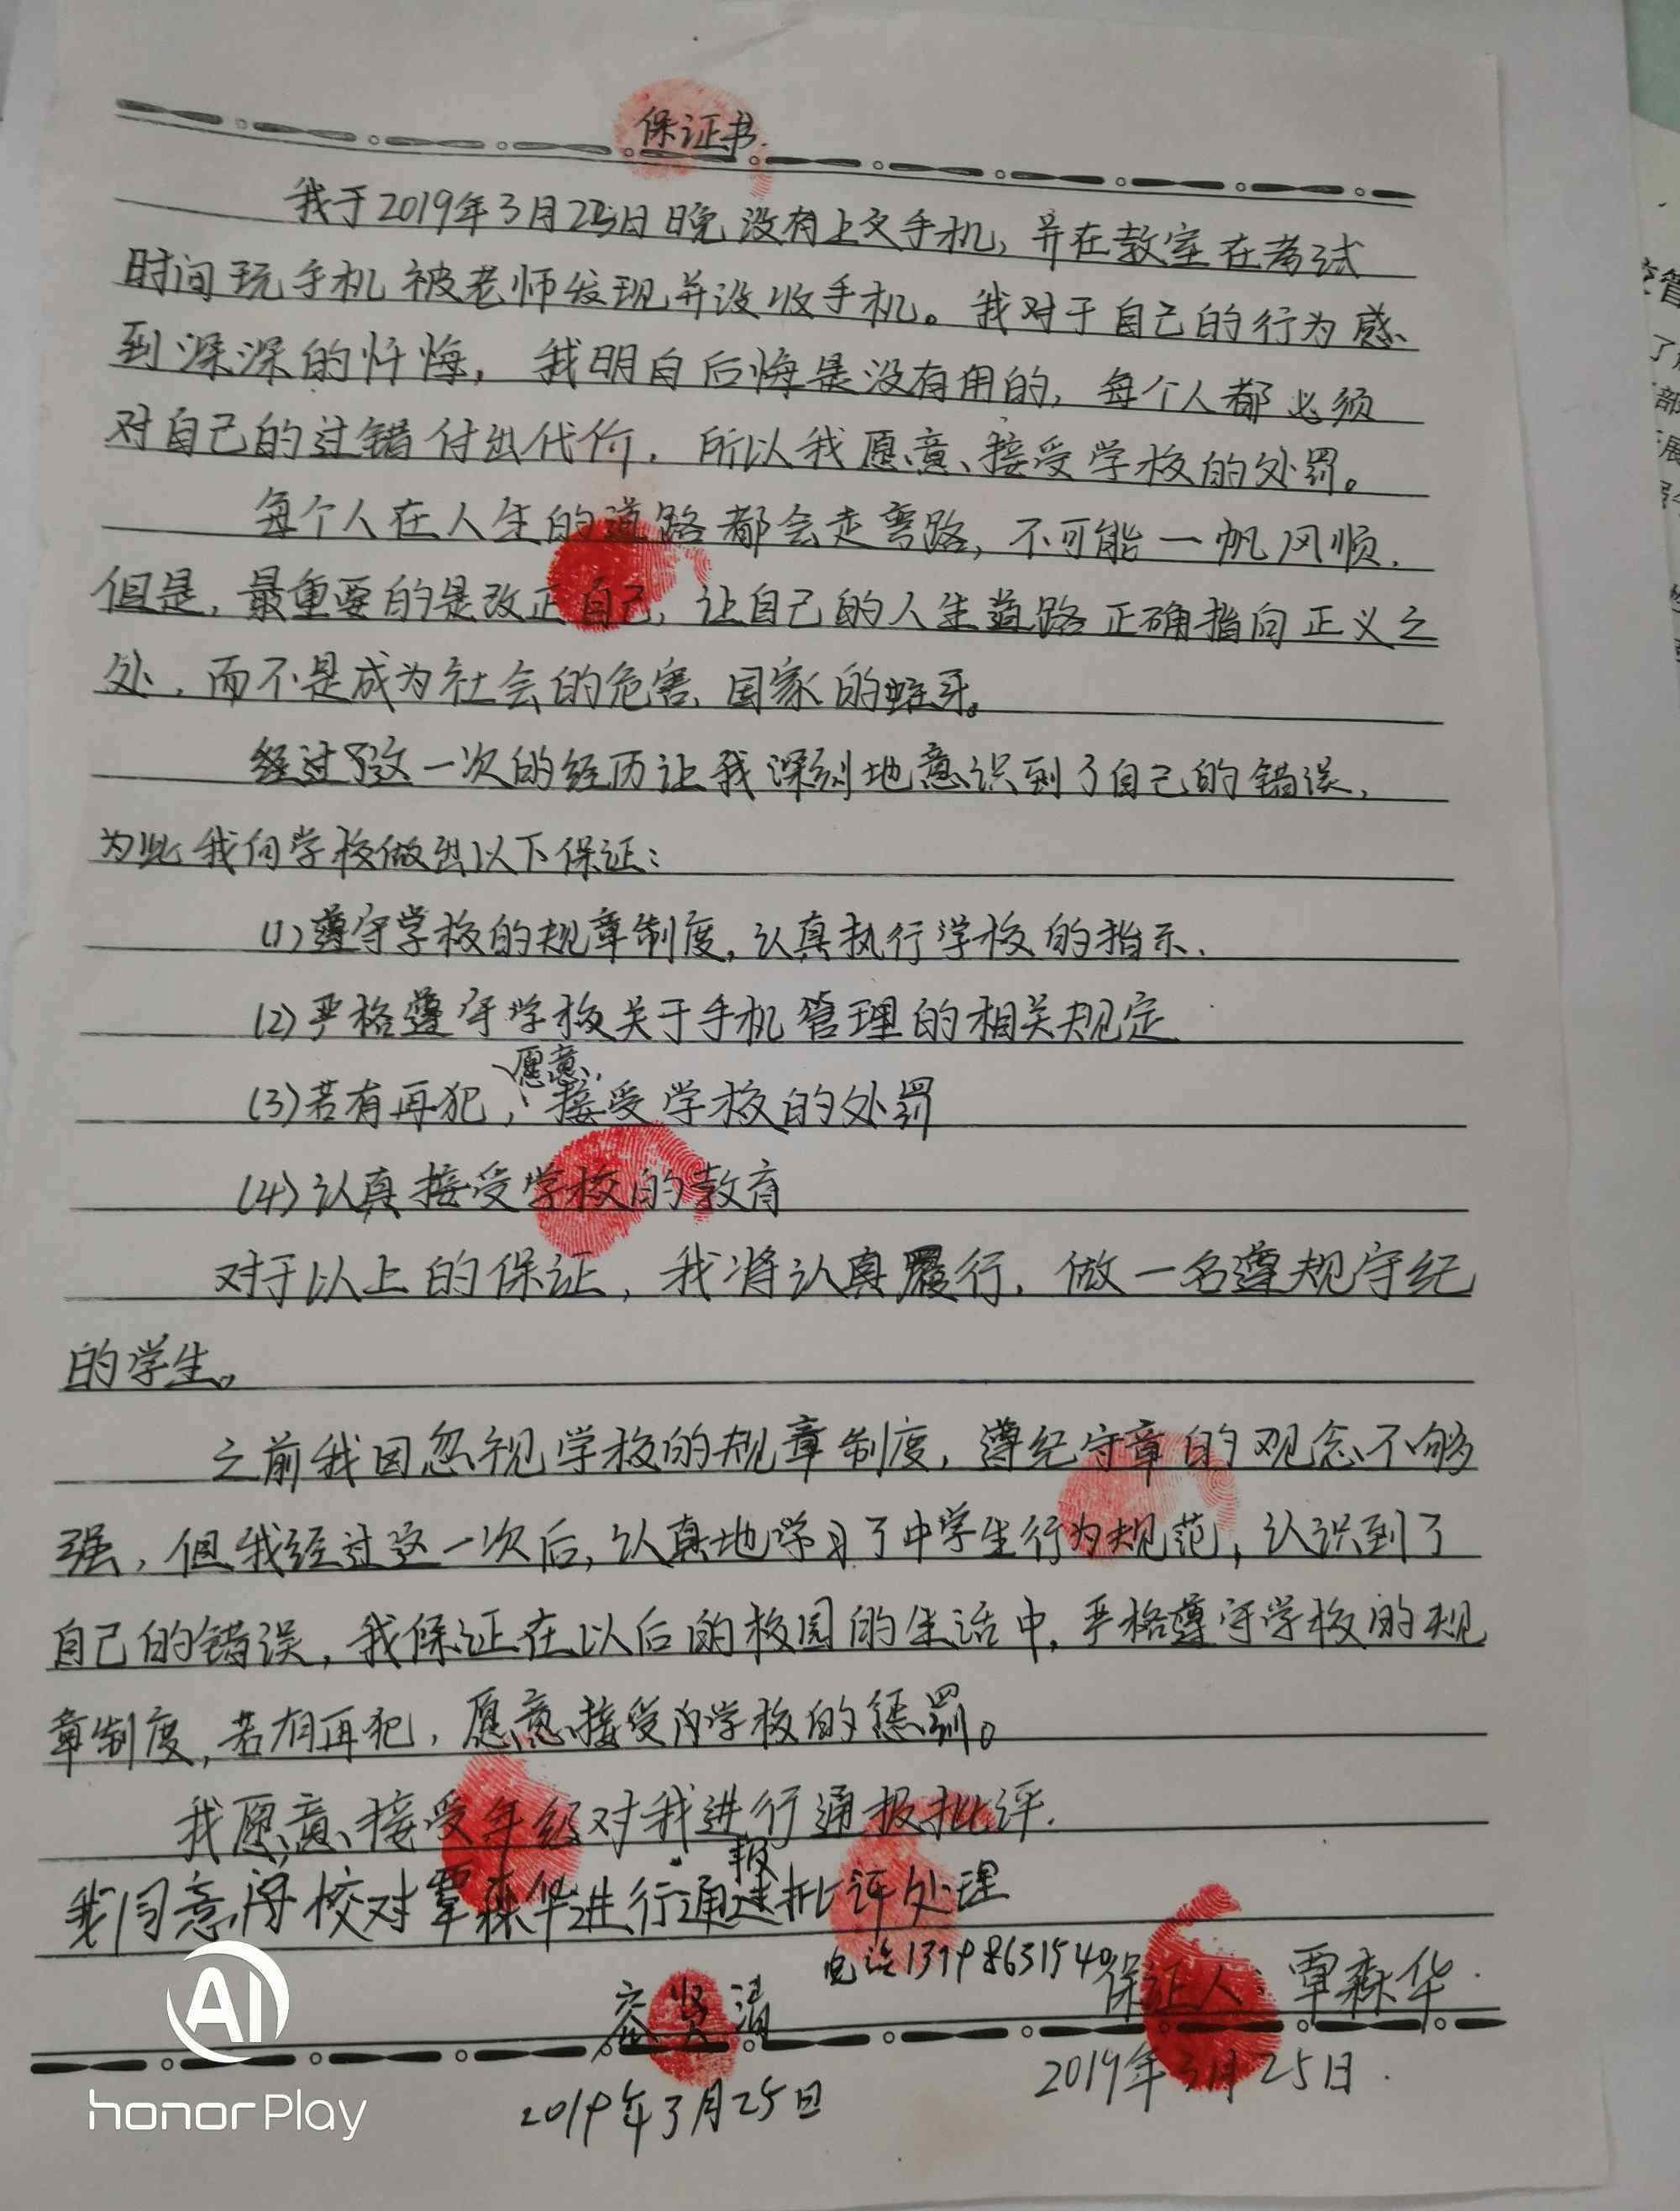 保证书.
我于2019年3月25日晚没有上交手机，并在教室在考试
时间玩手机被老师发现并没收手机。我对于自己的行为感
到深深的忏悔，我明白后悔是没有用的，每个人都必须
对自己的过错付出代价，所以我愿意接受学校的处罚。
每个人在人生的道路都会走弯路，不可能一帆风顺.
但是，最重要的是改正自己，让自己的人生道路正确指向正义之
处，而不是成为社会的危害、国家的蛀牙。
经过了这一次的经历让我深刻地意识到了自己的错误，
为此我向学校做出以下保证：
(1)遵守学校的规章制度，认真执行学校的指示.
(2)严格遵守学校关于手机管理的相关规定
(3)若有再犯，愿意接受学校的处罚
(4)认真接受学校的教育
对于以上的保证，我将认真履行，做一名遵规守纪
的学生。
之前我因忽视学校的规章制度，遵纪守章的观念不够
强，但我经过这一次后，认真地学习了中学生行为规范，认识到了
自己的错误，我保证在以后的校园的生活中，严格遵守学校的规
章制度，若有再犯，愿意接受学校的惩罚。
我愿意接受年级对我进行通报批评.
我同意学校对覃森华进行通报批评处理
电话13798631540
保证人：覃森华.
贤清
2019年3月25日.
2019年3月25日
AI
honor Play